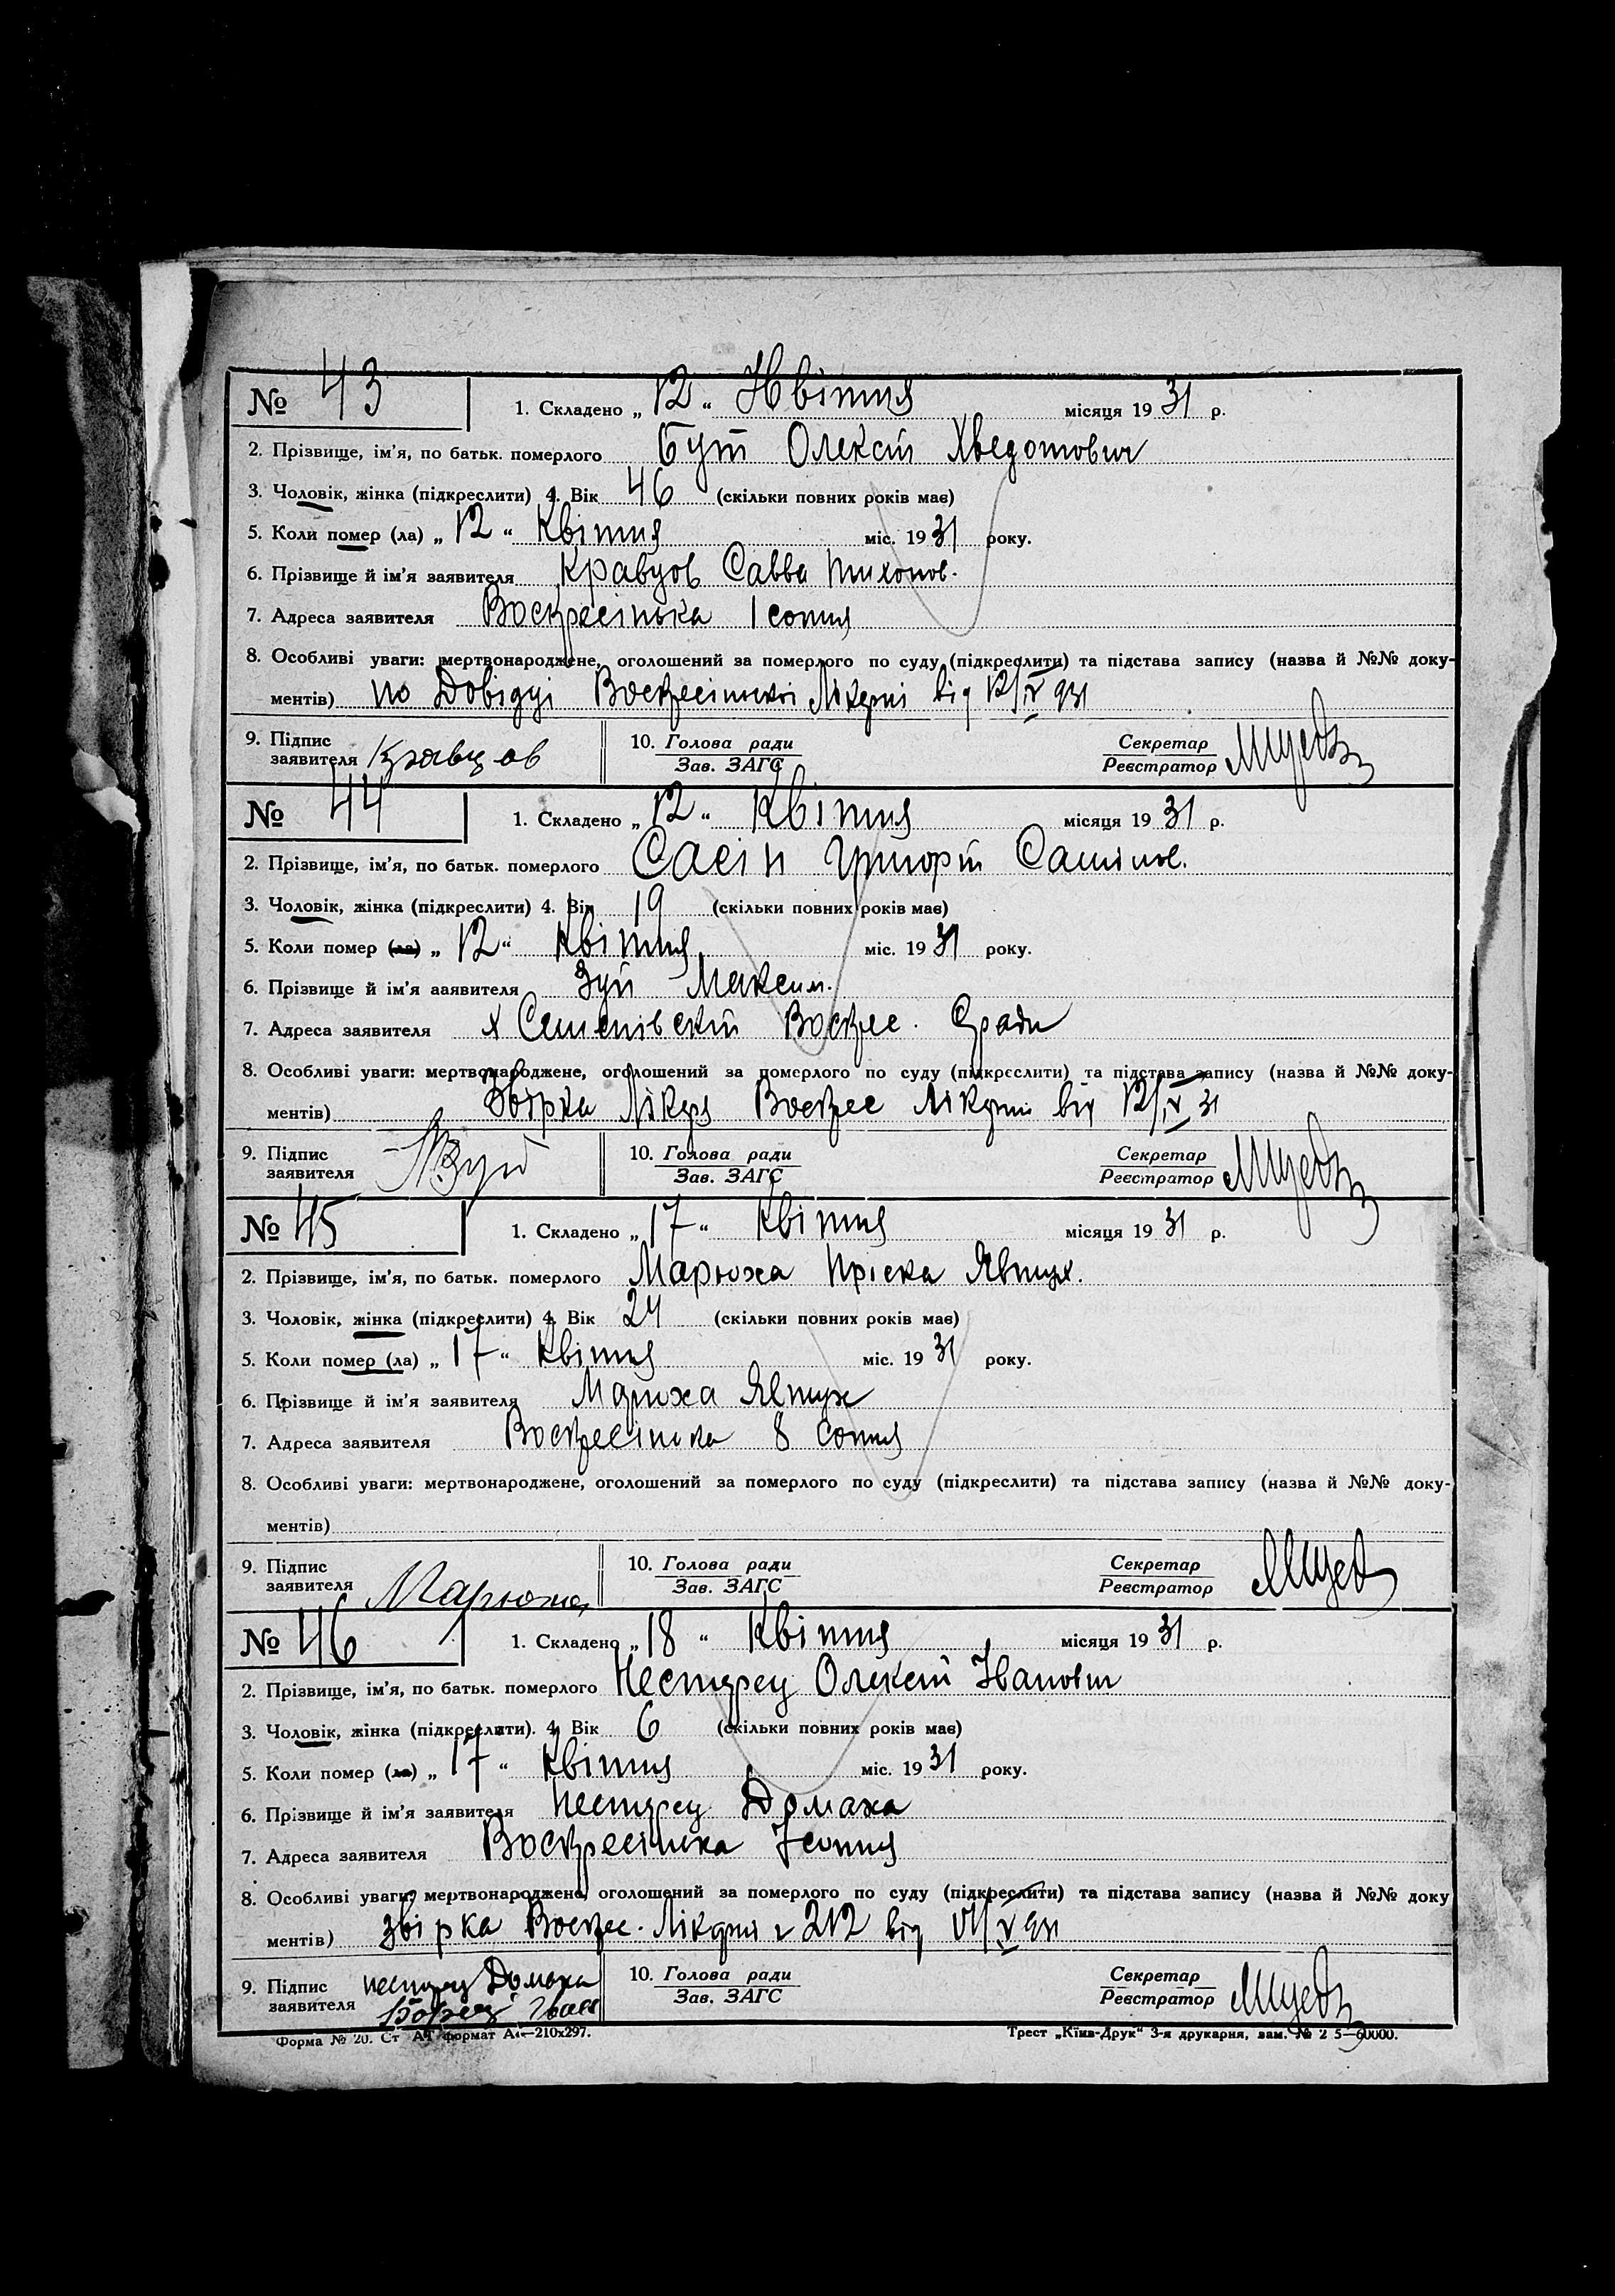 № 43 1. Складено „12“ Квітня місяця 1931 р.
2. Прізвище, ім'я, по батьк. померлого Бут Олексій Хведотович
3. Чоловік, жінка (підкреслити) 4. Вік 46 (скільки повних років має)
5. Коли помер (ла) „12“ Квітня міс. 1931 року.
6. Прізвище й ім'я заявителя Кравцов Савва Тихонов.
7. Адреса заявителя Воскресінька 1 сотня
8. Особливі уваги: мертвонароджене, оголошений за померлого по суду (підкреслити) та підстава запису (назва й №№ доку-
ментів) по Довідці Воскресінської Лікарні від 12/IV 931
9. Підпис
заявителя Кравцов
10. Голова ради
Зав. ЗАГС
Секретар
Реєстратор
№ 44 1. Складено „12“ Квітня місяця 1931 р.
2. Прізвище, ім'я, по батьк. померлого Саєін Григорій
3. Чоловік, жінка (підкреслити) 4. Вік 19 (скільки повних років має)
5. Коли помер (ла) „12“ Квітня міс. 1931 року.
6. Прізвище й ім'я ааявителя Зуй Максим.
7. Адреса заявителя х Семенівский Воскрес. С/ради
8. Особливі уваги: мертвонароджене, оголошений за померлого по суду (підкреслити) та підстава запису (назва й №№ доку-
ментів) Звірка Лікаря Воскрес Лікарні від 12/IV 31
9. Підпис
заявителя Зуй
10. Голова ради
Зав. ЗАГС
Секретар
Реєстратор
№ 45 1. Складено „17“ Квітня місяця 1931 р.
2. Прізвище, ім'я, по батьк. померлого Марюха Пріска Явтух.
3. Чоловік, жінка (підкреслити) 4. Вік 24 (скільки повних років має)
5. Коли помер (ла) „17“ Квітня міс. 1931 року.
6. Прізвище й ім'я заявителя Марюха Явтух
7. Адреса заявителя Воскресінька 8 сотня
8. Особливі уваги: мертвонароджене, оголошений за померлого по суду (підкреслити) та підстава запису (назва й №№ доку-
ментів)
9. Підпис
заявителя Марюха
10. Голова ради
Зав. ЗАГС
Секретар
Реєстратор
№ 46 1. Складено „18“ Квітня місяця 1931 р.
2. Прізвище, ім'я, по батьк. померлого Нестерец Олексій Іванович
3. Чоловік, жінка (підкреслити). 4. Вік 6 (скільки повних років має)
5. Коли помер (ла) „17“ Квітня міс. 1931 року.
6. Прізвище й ім'я заявителя Нестерец Домаха
7. Адреса заявителя Воскресінька 7 сотня
8. Особливі уваги: мертвонароджене, оголошений за померлого по суду (підкреслити) та підстава запису (назва й №№ доку
ментів) Звірка Воскрес. Лікарня 212 від
9. Підпис Нестерец Домаха
заявителя
10. Голова ради
Зав. ЗАГС
Секретар
Реєстратор
Форма № 20. Ст АТ формат А4—210х297.
Трест „Київ-Друк“ 3-я друкарня, зам. № 2 5—60000.